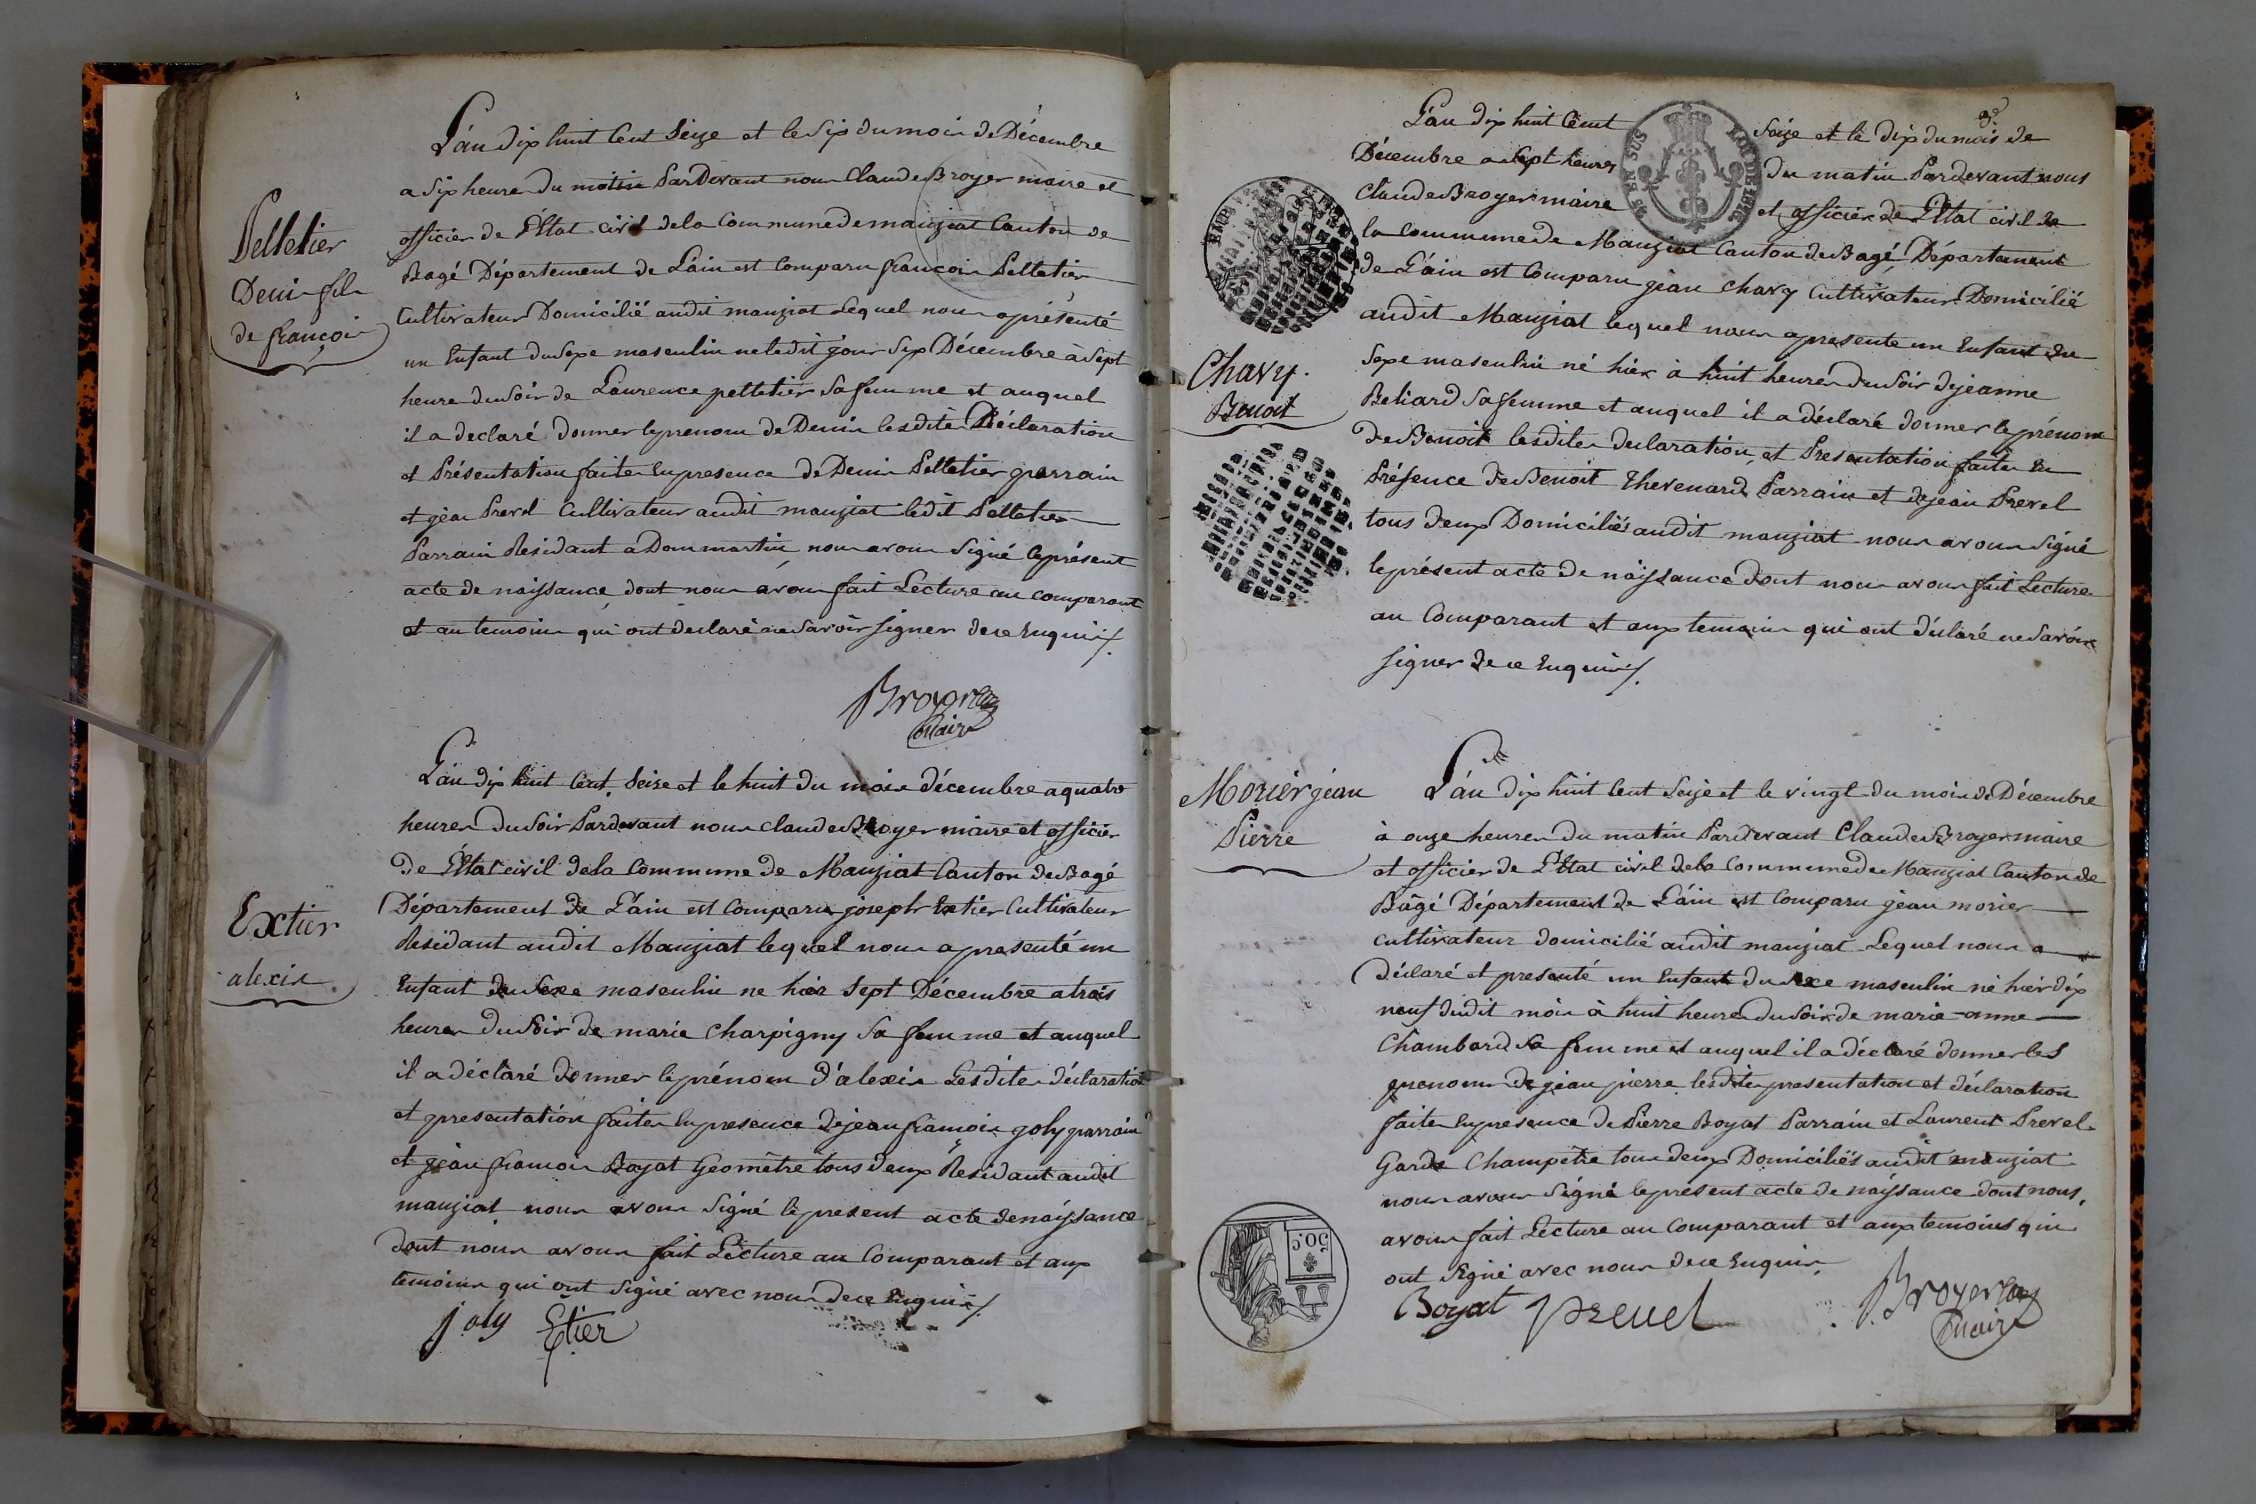 Pelletier
Denis fils
de françois
L'an dix huit Cent Seize et le Six du mois de Décembre
a Six heures du matin Pardevant nous Claude Broyer maire et
officier de l'Etat civil de la Commune de manziat Canton de
Bagé Département de L'ain est Comparu françois Pelletier
Cultivateur Domicilié audit manziat Lequel nous a présenté
un Enfant du Sexe masculin né ledit jour Six Décembre à Sept
heures du Soir de Laurence pelletier Sa femme et auquel
il a declaré donner le prenom de Denis lesdites Déclaration
et Présentation faites En presence de Denis Pelletier parrain
et jean Prevel Cultivateur audit manziat ledit Pelletier
Parrain Residant a Dommartin, nous avons Signé le présent
acte de naissance, dont nous avons fait Lecture au comparant
et au temoins qui ont declaré ne Savoir signer de ce Enquis /.
Broyer
maire
Extier
alexis
L'an dix huit Cent Seize et le huit du mois décembre a quatre
heures du Soir Pardevant nous Claude Broyer maire et officier
de l'Etat civil de la Commune de Manziat Canton de Bagé
Département de L'ain est Comparu joseph Extier Cultivateur
Residant audit Manziat lequel nous a presenté un
Enfant du Sexe masculin ne hier Sept Décembre a trois
heures du Soir de marie Charpigny Sa femme et auquel
il a déclaré donner le prénom d'alexis Lesdites déclaration
et presentation faites En presence de jean françois joly parrain
et jean françois Boyat Géomètre tous deux Residant audit
manziat nous avons Signé le present acte de naissance
dont nous avons fait Lecture au Comparant et aux
temoins qui ont signé avec nous de ce Enquis /
joly Etier
L'an dix huit Cent Seize et le dix du mois de
Décembre a Sept heures du matin Pardevant nous
Claude Broyer maire et officier de l'Etat civil de
la commune de Manziat Canton de Bagé, Département
de L'ain est Comparu jean Chavy Cultivateur Domicilié
audit Manziat lequel nous a presenté un Enfant du
Sexe masculin né hier à huit heures du Soir de jeanne
Beliard Sa femme et auquel il a déclaré donner le prénom
de Benoit lesdites declaration, et Presentation faites En
Présence de Benoit Thevenard Parrain et de jean Prevel
tous deux Domiciliés audit manziat nous avons Signé
le présent acte de naissance dont nous avons fait Lecture
au Comparant et aux temoins qui ont déclaré ne Savoir
signer de ce Enquis /.
Chavy.
Benoit
Morier jean
Pierre
L'an dix huit Cent Seize et le vingt du mois de Décembre
à onze heures du matin Pardevant Claude Broyer maire
et officier de l'Etat civil de la Commune de Manziat Canton de
Bagé Département de L'ain est Comparu jean morier
cultivateur domicilié audit manziat Lequel nous a
Déclaré et presenté un Enfant du Sexe masculin né hier dix
neuf dudit mois à huit heures du Soir de marie anne
Chambard Sa femme et auquel il a déclaré donner les
prenoms de jean pierre lesdites presentation et déclaration
faites En presence de Pierre Boyat Parrain et Laurent Prevel
Garde Champetre tous deux Domiciliés audit manziat
nous avons Signé le present acte de naissance dont nous,
avons fait Lecture au Comparant et aux temoins qui
ont signé avec nous de ce Enquis.
Boyat prevel Broyer
maire
50.C